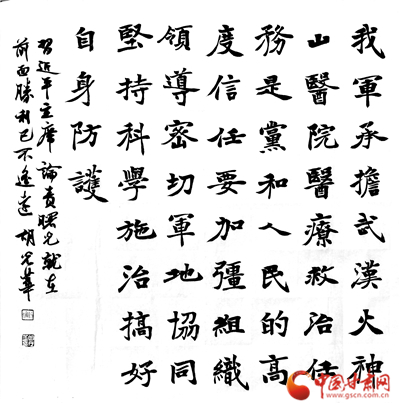 我軍承擔武漢火神
山醫院醫療救治任
務是黨和人民的高
度信任要加彊組織
領導密切軍地協同
堅持科學施治搞好
自身防護
習近平主席論責曙光就在
前面勝利已不遙遠 胡光華
中国甘肃网
www.gscn.com.cn